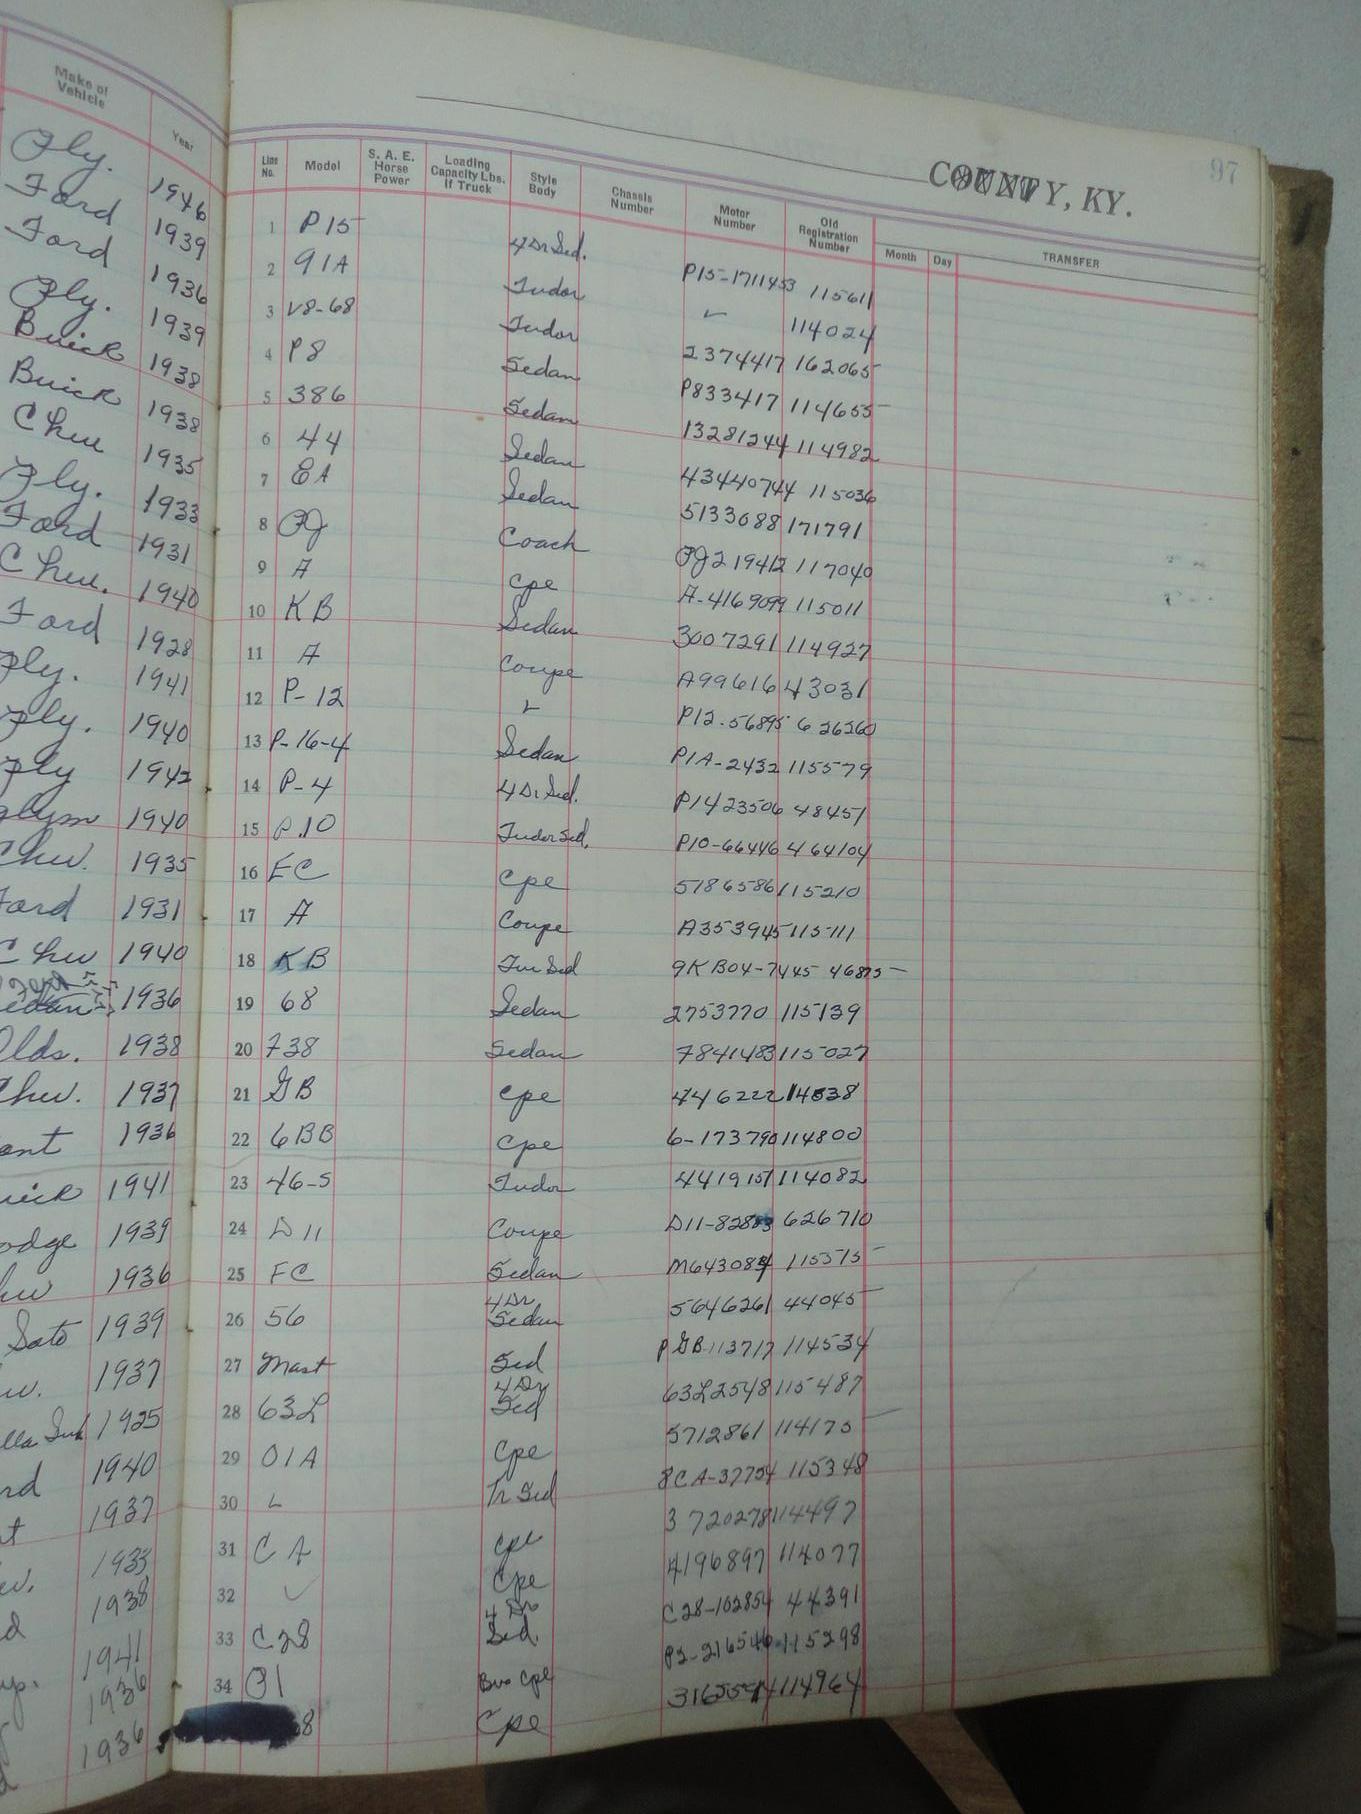 Make of Vehicle Year
Ply. 1946
Ford 1939
Ford 1936
Ply. 1939
Buick 1938
Buick 1938
Chev 1935
Ply. 1933
Ford 1931
Chev. 1940
Ford 1928
Ply. 1941
Ply. 1940
Ply 1942
Plym 1940
Chev. 1935
Ford 1931
Chev 1940
Sedan 1936
Olds. 1938
Chev. 1937
1936
1941
1939
1936
1939
1937
1925
1940
1937
1933
1938
1941
1936
1936
COUNTY, KY. 97
Line No. Model S. A. E. Horse Power Loading Capacity Lbs. If Truck Style Body Chassis Number Motor Number Old Registration Number Month Day TRANSFER
1 P15 4 Dr Sed. P15-1711453 115611
2 91A Tudor ✓ 114024
3 V8-68 Tudor 2374417 162065
4 P8 Sedan P833417 114655
5 386 Sedan 13281244 114982
6 44 Sedan 43440744 115036
7 EA Sedan 5133688 171791
8 PJ Coach PJ219412 117040
9 A Cpe A-4169099 115011
10 KB Sedan 3007291 114927
11 A Coupe A99616 43031
12 P-12 ✓ P12-56895 626260
13 P-16-4 Sedan P1A-2432 115579
14 P-4 4 Dr Sed. P1423506 48451
15 P.10 Tudor Sed. P10-66446 464104
16 EC Cpe 5186586 115210
17 A Coupe A353945 115111
18 KB Sed 9KB04-7445 46875
19 68 Sedan 2753770 115139
20 F38 Sedan 7841483 115027
21 GB Cpe 446222
22 6BB Cpe 6-173790 114800
23 46-S Tudor 4419157 114082
24 D11 Coupe 626710
25 FC Sedan 115375
26 56 4 Dr Sedan 5646261 44045
27 Mast Sed 114534
28 63L 4 Dr Sed 63L2548 115487
29 01A Cpe 5712861 114175
30 Tr Sed 8CA-37754 115348
31 CA Cpe 3720278 114497
32 ✓ Cpe 4196897 114077
33 C28 4 Dr Sed. C28-102854 44391
34 Bus Cpe P2-216546 115298
8 Cpe 114964